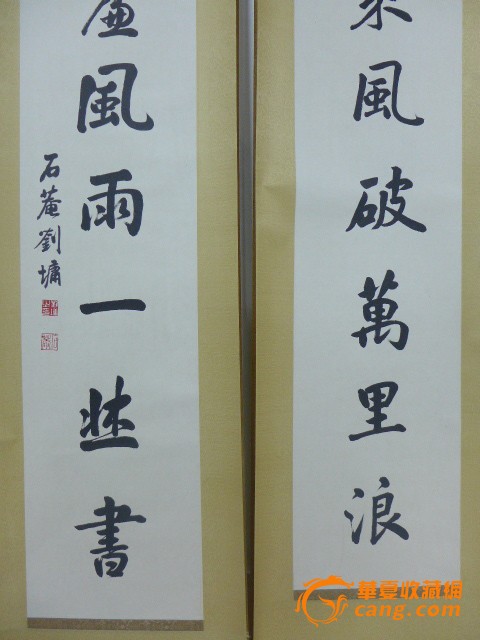 風破萬里浪
風雨一書
石菴劉墉
華夏收藏網
cang.com